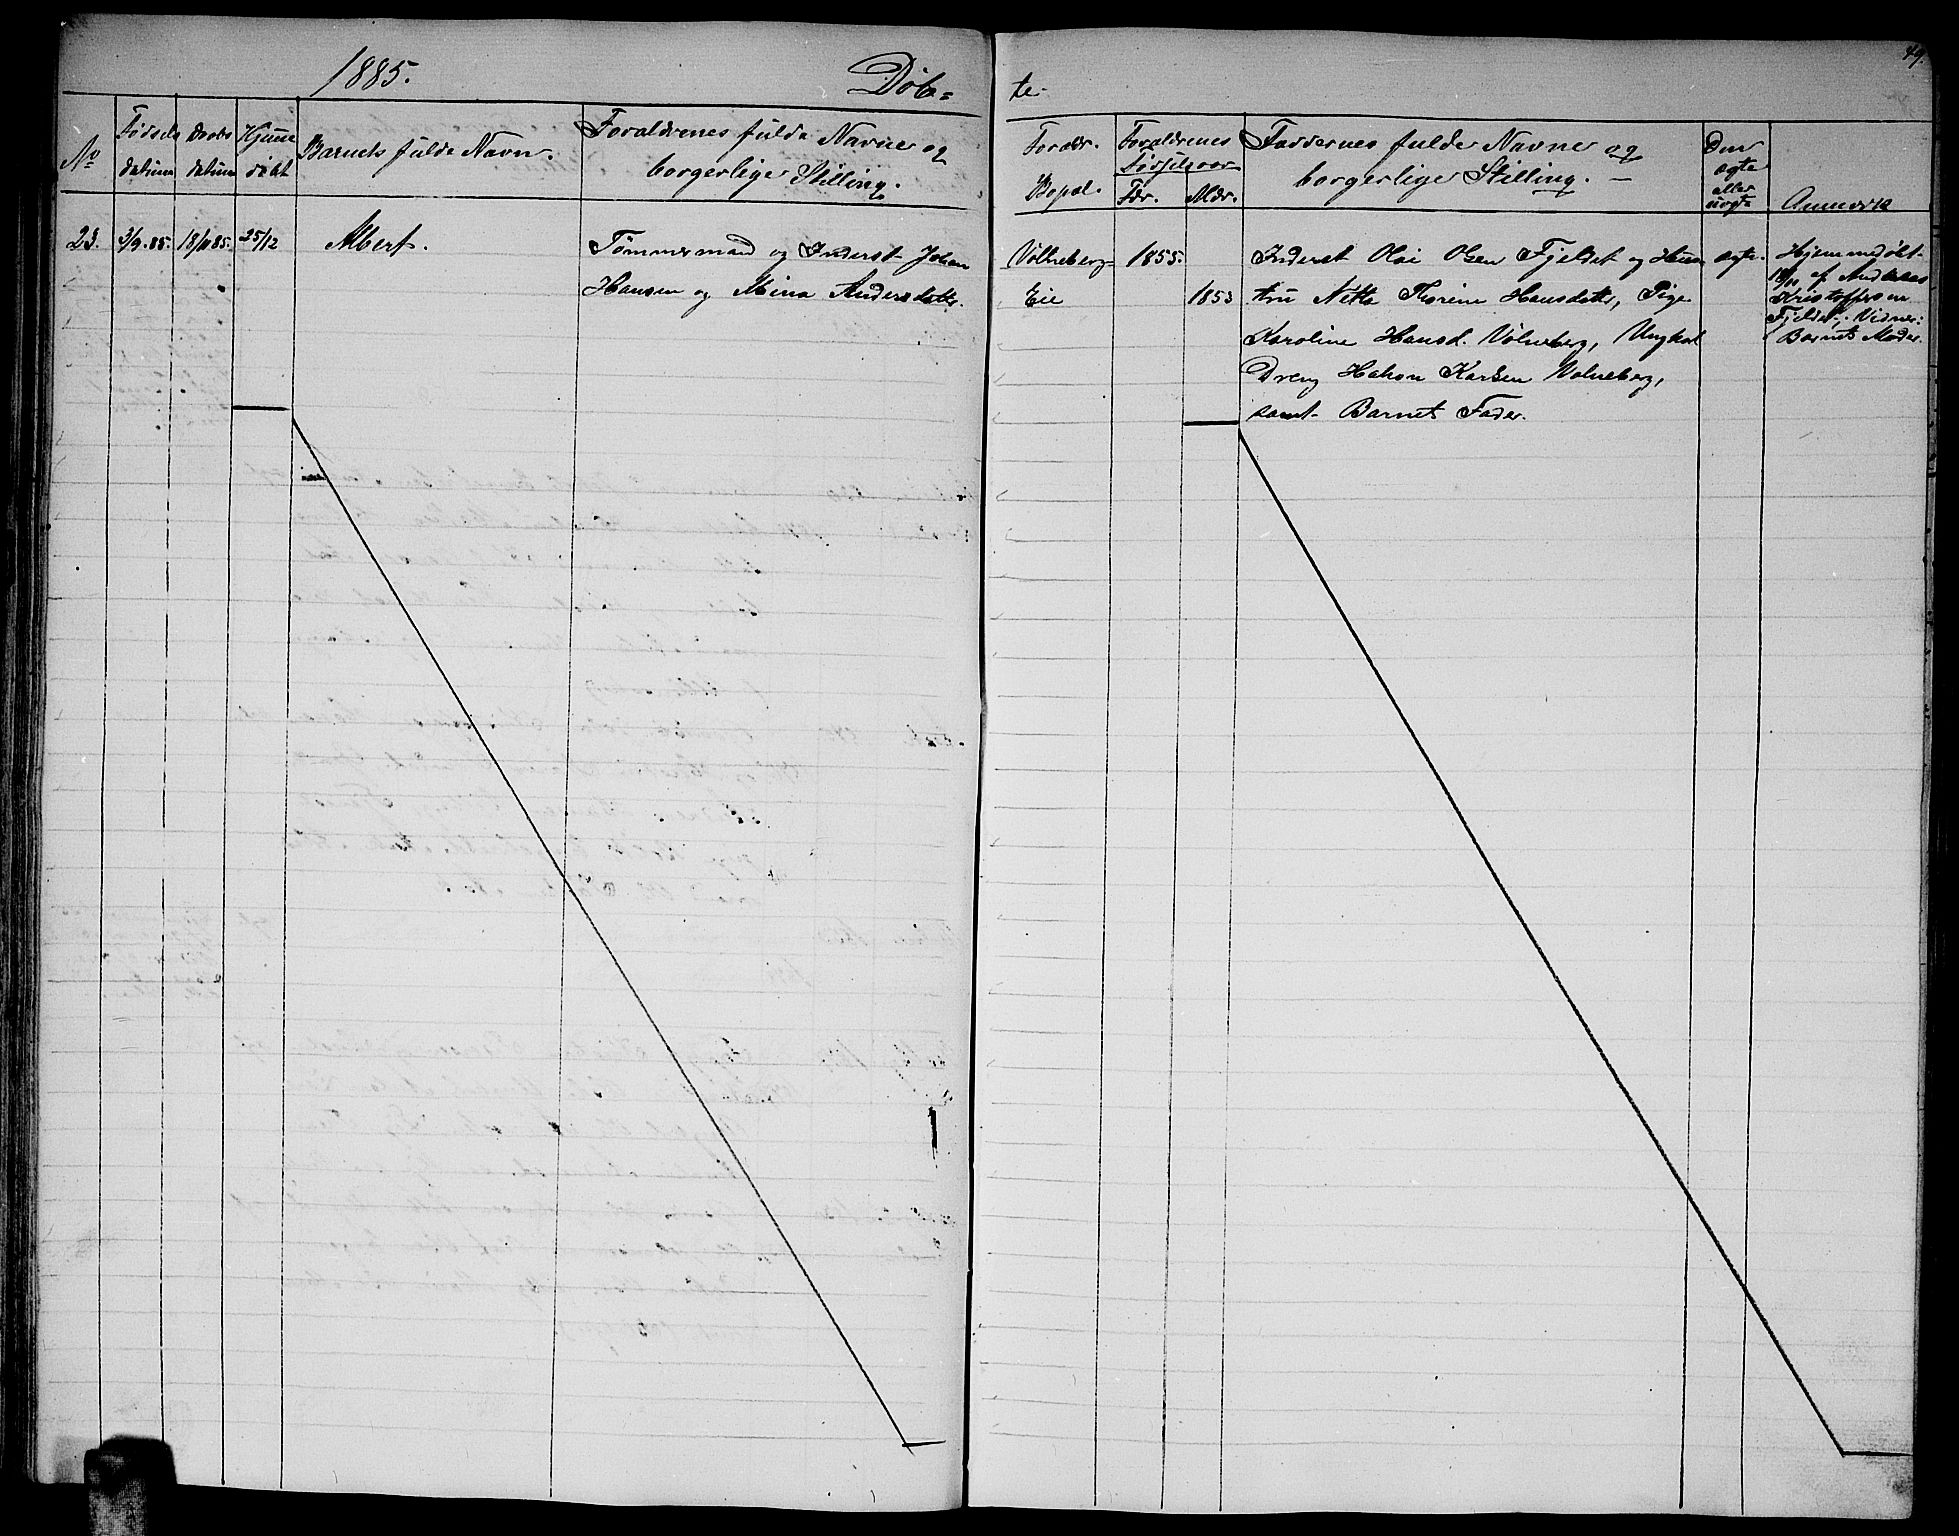 49.
1885. Døb= te.
No
Fødsels datum
Daabs datum
Hjemme døbt
Barnets fulde Navn.
Forældrenes fulde Navne og
borgerlige Stilling.
Forældr. Bopæl.
Forældrenes Fødselsaar
Fdr. Mdr.
Faddernes fulde Navne og
borgerlige Stilling. —
Om ægte eller uægte
Anmærk
23. 3/9.85. 18/1185. 25/12 Albert. Tømmermand og Inderst Johan
Hansen og Mina Andersdatter.
Volneberg= 1855.
Eie 1853
Inderst Olai Olsen Fjeldet og Hus=
tru Netta Thorine Hansdatter, Pige
Karoline Hansd. Volneberg, Ungkarl
Dreng Hakon Karlsen Volneberg,
samt Barnets Fader.
ægte.
Hjemmedøbt
18/11 af Andreas
Kristoffersen
Fjeldet; Vidner:
Barnets Moder.